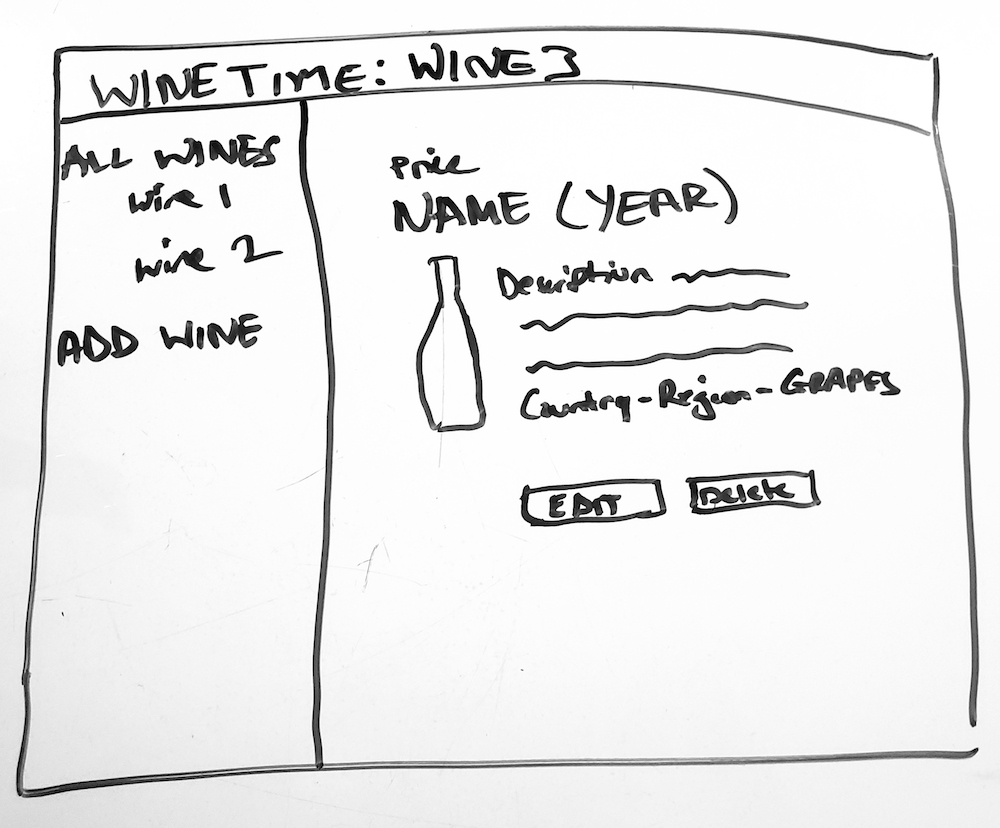 WINE TIME: WINE 3
ALL WINES
wine 1
wine 2
ADD WINE
Price
NAME (YEAR)
Description
Country - Region - GRAPES
EDIT
Delete